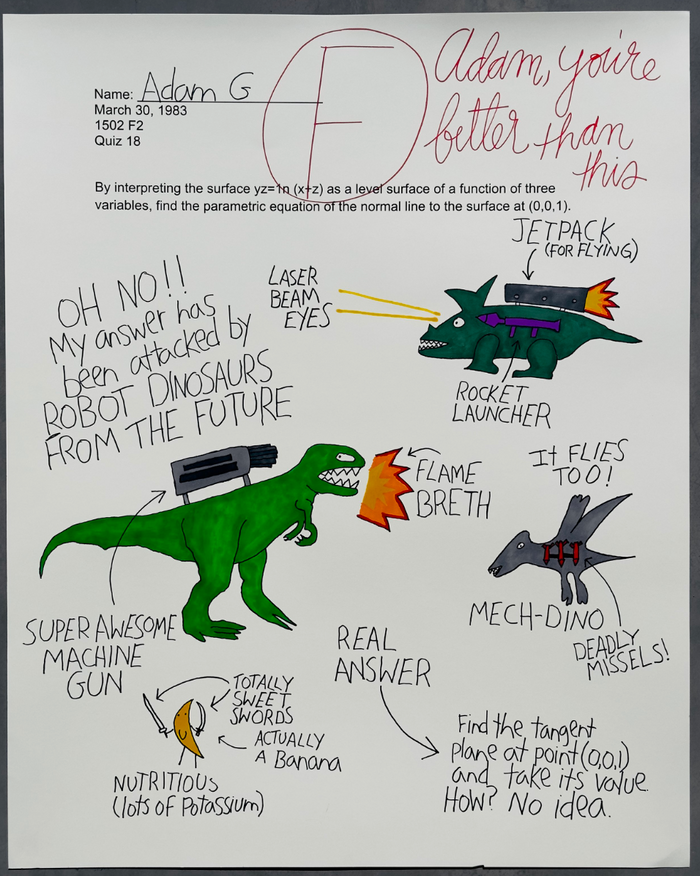 Name: Adam G
March 30, 1983
1502 F2
Quiz 18
F
Adam, you're
better than
this
By interpreting the surface yz=1n (x+z) as a level surface of a function of three
variables, find the parametric equation of the normal line to the surface at (0,0,1).
OH NO!!
My answer has
been attacked by
ROBOT DINOSAURS
FROM THE FUTURE
LASER
BEAM
EYES
JETPACK
(FOR FLYING)
ROCKET
LAUNCHER
FLAME
BRETH
It FLIES
TOO!
MECH-DINO
DEADLY
MISSELS!
SUPER AWESOME
MACHINE
GUN
TOTALLY
SWEET
SWORDS
ACTUALLY
A Banana
NUTRITIOUS
(lots of Potassium)
REAL
ANSWER
Find the tangent
plane at point (0,0,1)
and take its value.
How? No idea.